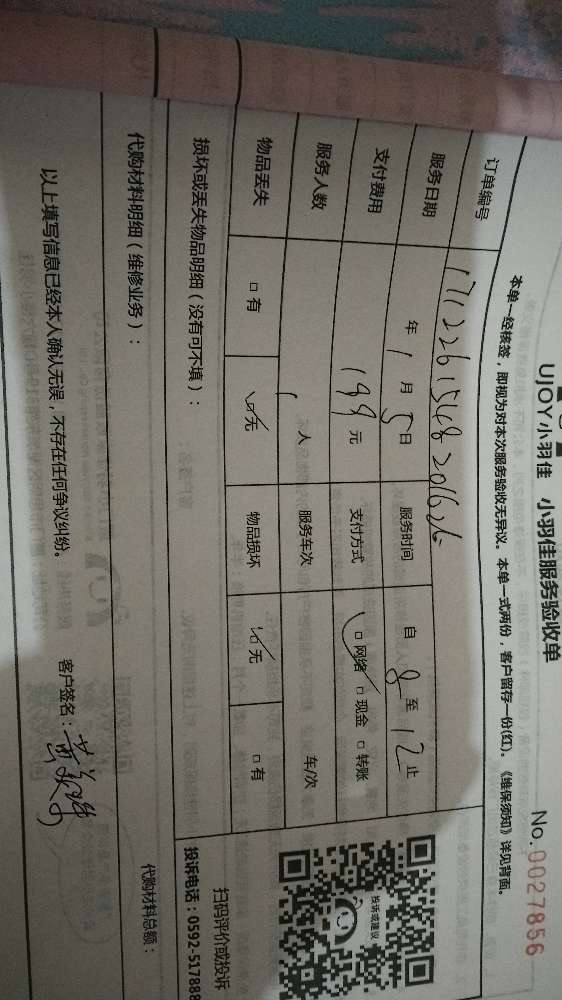 UJOY小羽佳 小羽佳服务验收单
No. 0027856
本单一经核签，即视为对本次服务验收无异议。本单一式两份，客户留存一份(红)。《维保须知》详见背面。
订单编号 1712261548201626
服务日期 年 1 月 5 日 服务时间 自 8 至 12 止
支付费用 199 元 支付方式 □网络 □现金 □转账
服务人数 1 人 服务车次 车/次
物品丢失 □有 □无 物品损坏 □无 □有
投诉或建议
扫码评价或投诉
投诉电话：0592-517888
损坏或丢失物品明细（没有可不填）：
代购材料明细（维修业务）： 代购材料总额：
以上填写信息已经本人确认无误，不存在任何争议纠纷。 客户签名：